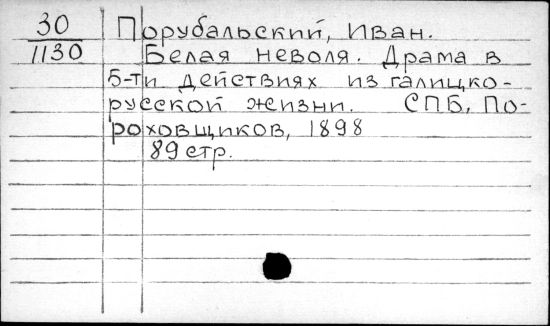 30 Порубальский, Иван.
1130 Белая неволя. Драма в
5-ти действиях из галицко-
русской жизни. СПБ, По-
роховщиков, 1898
89 стр.